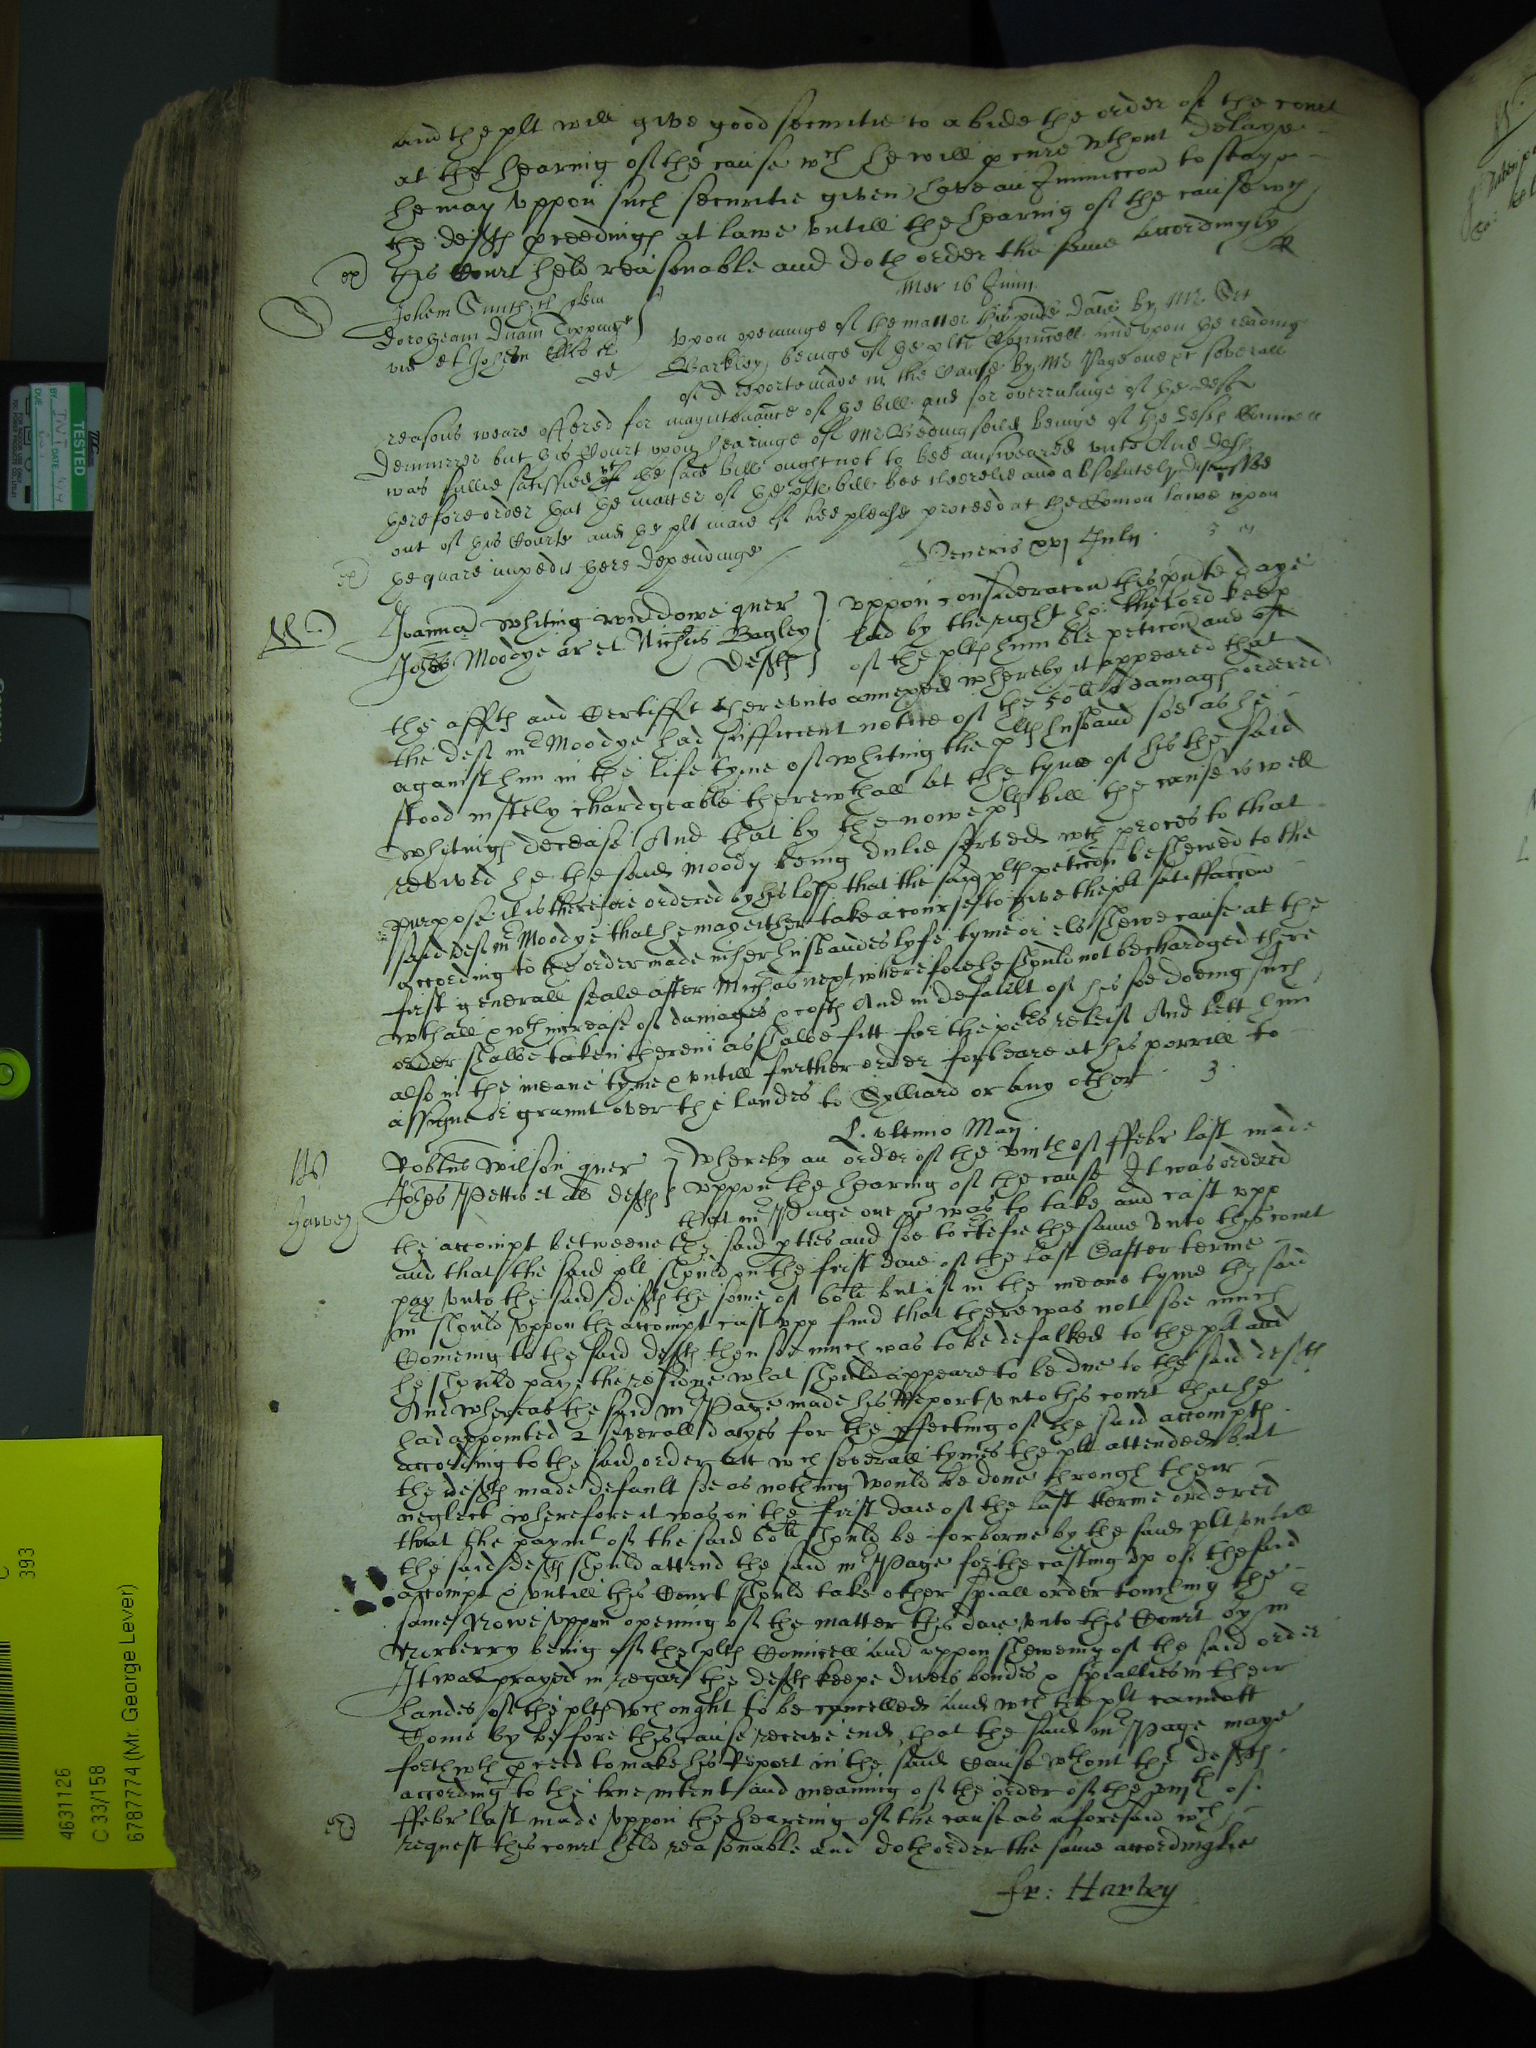 and the plt will give good securitie to abide the order of the court
at the hearing of the cause wch he will pcure wthout delaye
he may uppon such securitie given have an Iniunccon to staye
the defts pceedings at lawe untill the hearing of the cause wch
this Court held reasonable and doth order the same accordingly
Mer 16 Junii
Johem Smith
Dorotheam Dnam
vid et Johem Ellis
Upon openinge of the matter this pnte daie by Mr
Barkley beinge of the plts Councell and upon the readinge
of a reporte made in the Cause by Mr Page one &c severall
reasons weare offered for mayntenance of the bill and for overrulinge of the defts
demurrer but this Court upon hearinge of Mr Bedingfeild beinge of the defts Councell
was fullie satisfied yt the said bill ought not to bee answeared unto And doth
therefore order that the matter of the plts bill bee cleerelie and absolutely dismissed
out of this Courte and the plt maie if hee please proceed at the Comon lawe upon
the quare impedit there dependinge
Veneris xvj Julij
Joanna Whiting widdowe quer
Johes Moodye ar et Nichus Bagley
defts
uppon consideracon this pnte daye
had by the right ho: the lord keep
of the plts humble peticon and of
the affts and Certifft thereunto annexed whereby it appeared that
the deft mr Moodye had sufficient notice of the 50li damags ordered
against him in the life tyme of Whiting the plts husband soe as he
stood iustely chardgeable therewthall at the tyme of his the said
Whitings decease And that by the nowe plts bill the cause is well
revived he the said Moody being dulie served wth proces to that
purpose it is therefore ordered by his lopp that the said plts peticon be shewed to the
said deft mr Moodye that he may either take a course to give the plt satisfaccon
according to the order made in her husbandes lyfe tyme or els shewe cause at the
first generall seale after Michas next wherefore he should not be chardged there
wthall & wth increase of damages & costs And in default of his soe doeing such
order shalbe taken therein as shalbe fitt for the petrs releif And lett him
also in the meane tyme & untill further order forbeare at his perrill to
assigne or graunt over the landes to Sylliard or any other
L. ultimo Maij
Harvey
Robtus Wilson quer
Johes Pettis et al defts
Whereby an order of the viijth of ffebr last made
uppon the hearing of the cause It was ordered
that mr Page one &c was to take and cast upp
the accompt betweene the said pties and soe to ctefie the same unto this court
and that the said plt should on the first daie of the last Easter terme
pay unto the said defts the some of 60li but if in the meane tyme the said
mr should uppon the accompt cast upp find that there was not soe much
Comeing to the said defts then soe much was to be defalked to the plt and
he should paye the residue what should appeare to be due to the said defts
And whereas the said mr Page made his Report unto this court that he
had appointed 2 severall dayes for the effecting of the said accompts
according to the said order att wch severall tymes the plt attended but
the defts made default soe as nothing would be done through their
neglect wherefore it was on the first daie of the last terme ordered
that the paymt of the said 60li should be forborne by the said plt untill
the said defts should attend the said mr Page for the casting up of the said
accompt & untill this Court should take other spiall order touching the
same Nowe uppon opening of the matter this daie unto this Court by mr
Norberry being of the plts Councell and uppon shewing of the said order
It was prayed in regard the defts keepe divers bondes & spialties in their
handes of the plts wch ought to be cancelled and wch the plt cannott
Come by before this cause receive end, that the said mr Page maye
forthwth pceed to make his Report in the said Cause wthout the defts
according to the true intent and meaning of the order of the viijth of
ffebr last made uppon the heareing of the cause as aforesaid wch
request this court held reasonable and doth order the same accordinglie
fr: Harvey
TESTED
4631126
C 33/158
6787774 (Mr. George Lever)
393